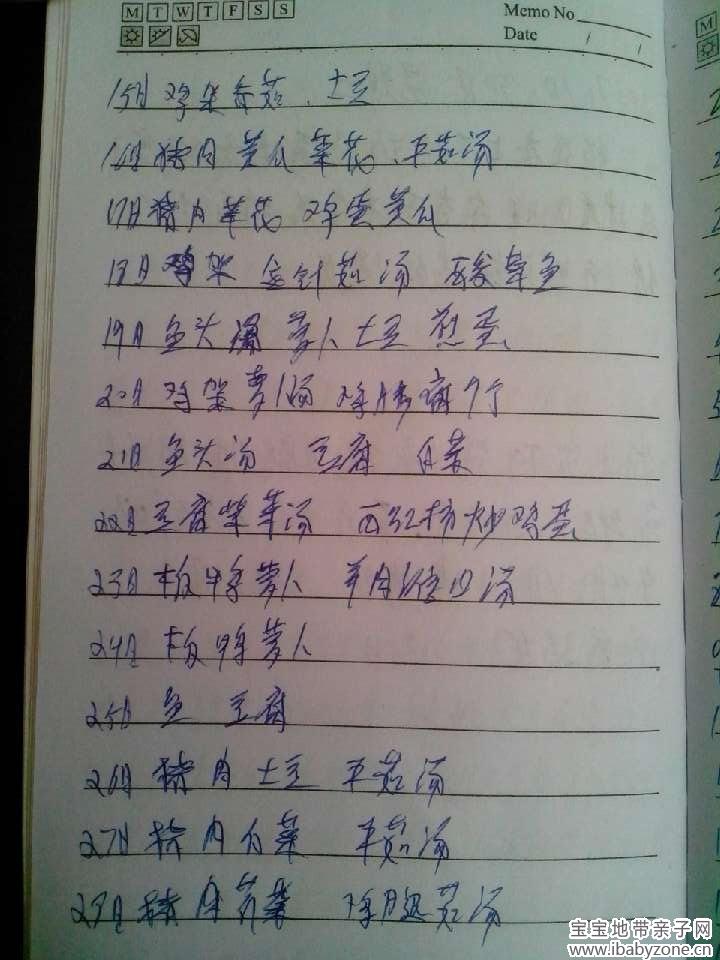 M T W T F S S
Memo No
Date / /
15日 鸡架香菇、土豆
16日 猪肉 黄瓜 菜花、平菇汤
17日 猪肉菜花 鸡蛋黄瓜
18日 鸡架 金针菇汤 酸菜鱼
19日 鱼头 萝卜 土豆 煎蛋
20日 鸡架萝卜汤 鸡
21日 鱼头汤 豆腐 白菜
22日 豆腐紫菜汤 西红柿炒鸡蛋
23日 板鸭萝卜 羊肉 汤
24日 板鸭萝卜
25日 鱼 豆腐
26日 猪肉 土豆 平菇汤
27日 猪肉白菜 平菇汤
29日 猪肉 菜 鸡 菇汤
M
宝宝地带亲子网
www.ibabyzone.cn